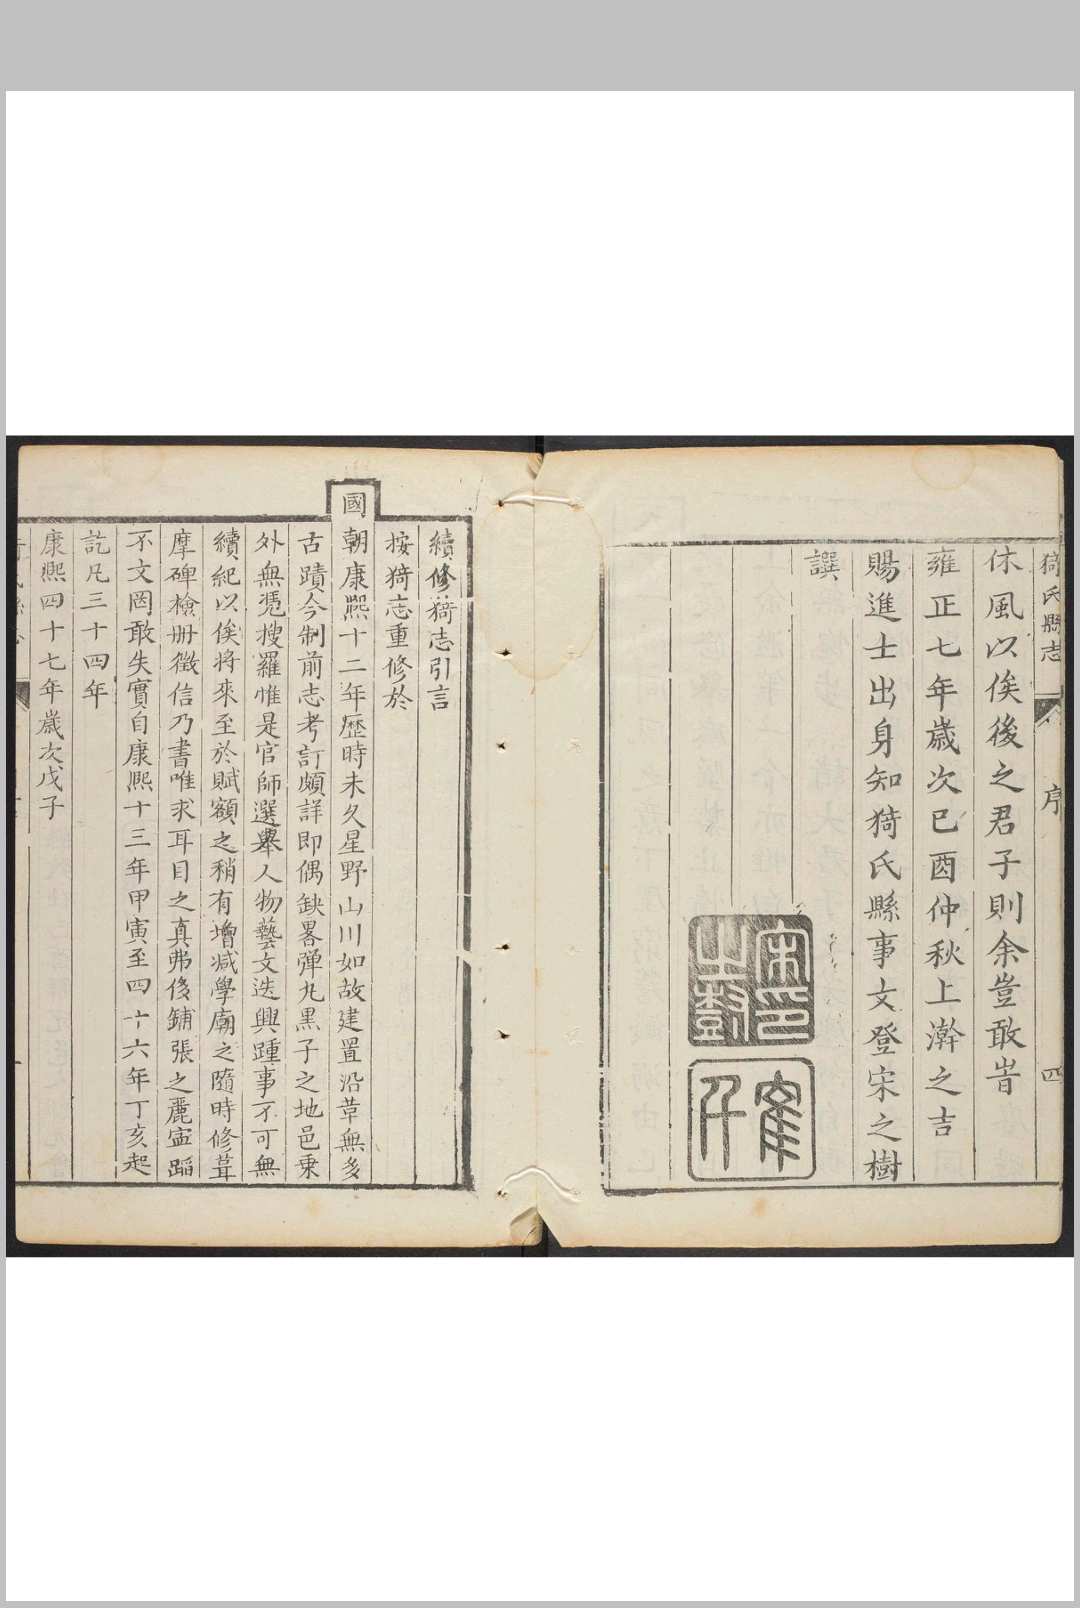 猗氏縣志
序
四
休風以俟後之君子則余豈敢旹
雍正七年歲次己酉仲秋上澣之吉
賜進士出身知猗氏縣事文登宋之樹
譔
宋印之樹
續修猗志引言
按猗志重修於
國朝康熙十二年歷時未久星野山川如故建置沿革無多
古蹟今制前志考訂頗詳即偶缺畧彈丸黑子之地邑乘
外無憑搜羅惟是官師選舉人物藝文迭興踵事不可無
續紀以俟將來至於賦額之稍有增減學廟之隨時修葺
摩碑檢册徵信乃書唯求耳目之真弗侈鋪張之麗寧蹈
不文罔敢失實自康熙十三年甲寅至四十六年丁亥起
訖凡三十四年
康熙四十七年歲次戊子